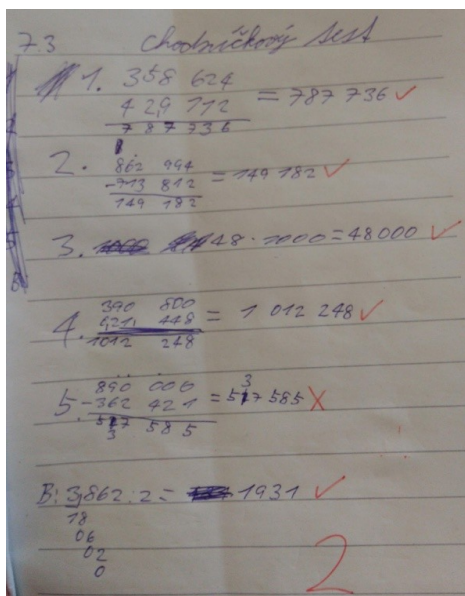 7.3 Chodníčkový test
1. 358 624
429 112 = 787 736 ✓
787 736
2. 862 994
-713 812 = 149 182 ✓
149 182
3. 48 · 1000 = 48000 ✓
390 800
4. 621 448 = 1 012 248 ✓
1012 248
890 006
5. -362 421 = 537 585 X
537 585
B: 3862 : 2 = 1931 ✓
18
06
02
0
2